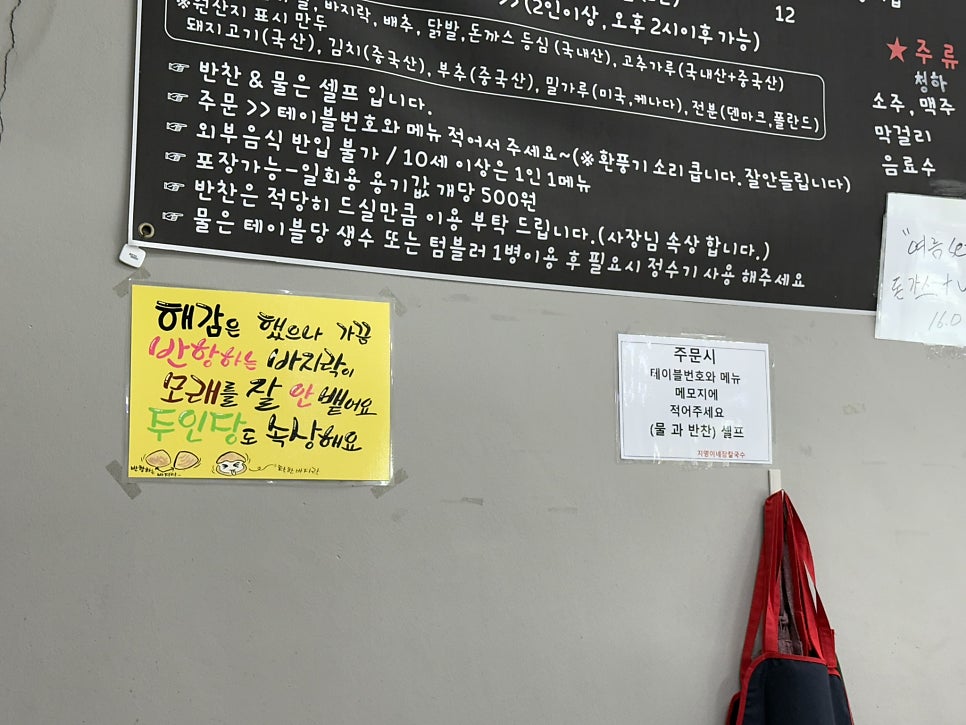 (2인이상, 오후 2시이후 가능)
12
※원산지 표시 만두
바지락, 배추, 닭발, 돈까스 등심 (국내산), 고추가루(국내산+중국산)
돼지고기(국산), 김치(중국산), 부추(중국산), 밀가루(미국,케나다), 전분(덴마크,폴란드)
☞ 반찬 & 물은 셀프 입니다.
☞ 주문 >> 테이블번호와 메뉴 적어서 주세요~(※ 환풍기 소리 큽니다. 잘안들립니다)
☞ 외부음식 반입 불가 / 10세 이상은 1인 1메뉴
☞ 포장가능-일회용 용기값 개당 500원
☞ 반찬은 적당히 드실만큼 이용 부탁 드립니다.(사장님 속상 합니다.)
☞ 물은 테이블당 생수 또는 텀블러 1병이용 후 필요시 정수기 사용 해주세요
★주류
청하
소주, 맥주
막걸리
음료수
돈가스+
16.0
해감은 했으나 가끔
반항하는 바지락이
모래를 잘 안 뱉어요
두인당도 속상해요
반항하는
바지락
주문시
테이블번호와 메뉴
메모지에
적어주세요
(물 과 반찬) 셀프
지명이네장칼국수